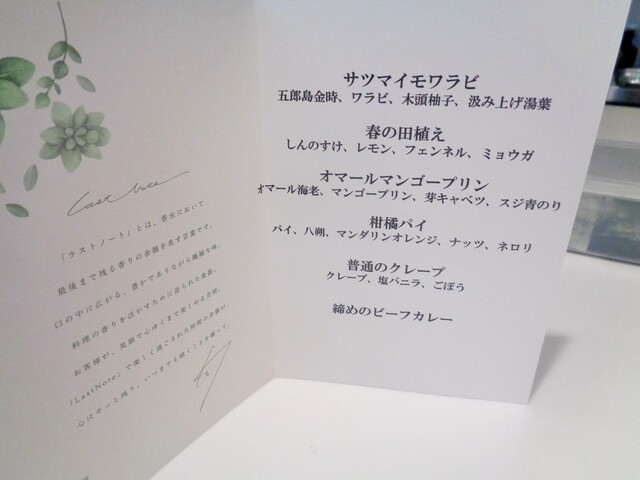 Last Note
「ラストノート」とは、香水において
最後まで残る香りの余韻を表す言葉です。
口の中に広がる、豊かでありながら繊細な味。
料理の香りを活かすために造られた食器。
お客様が、笑顔で心ゆくまで楽しめる空間。
「LastNote」で楽しく過ごされた時間の余韻が、
心にそっと残り、いつまでも続くことを願って。
サツマイモワラビ
五郎島金時、ワラビ、木頭柚子、汲み上げ湯葉
春の田植え
しんのすけ、レモン、フェンネル、ミョウガ
オマールマンゴープリン
オマール海老、マンゴープリン、芽キャベツ、スジ青のり
柑橘パイ
パイ、八朔、マンダリンオレンジ、ナッツ、ネロリ
普通のクレープ
クレープ、塩バニラ、ごぼう
締めのビーフカレー